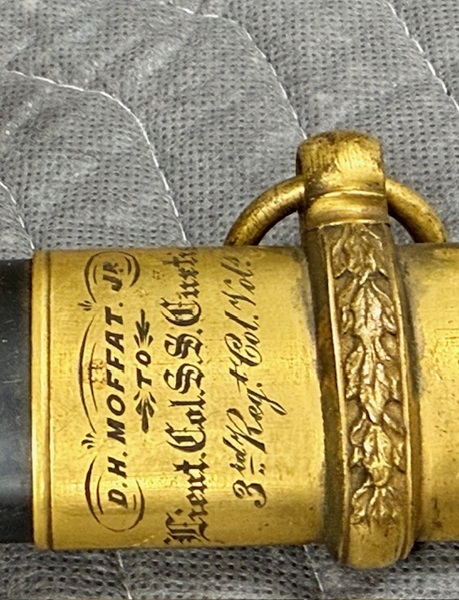 D.H. MOFFAT. JR
TO
Lieut. Col. S.S. Curtis
3rd Regt. Col. Vols.